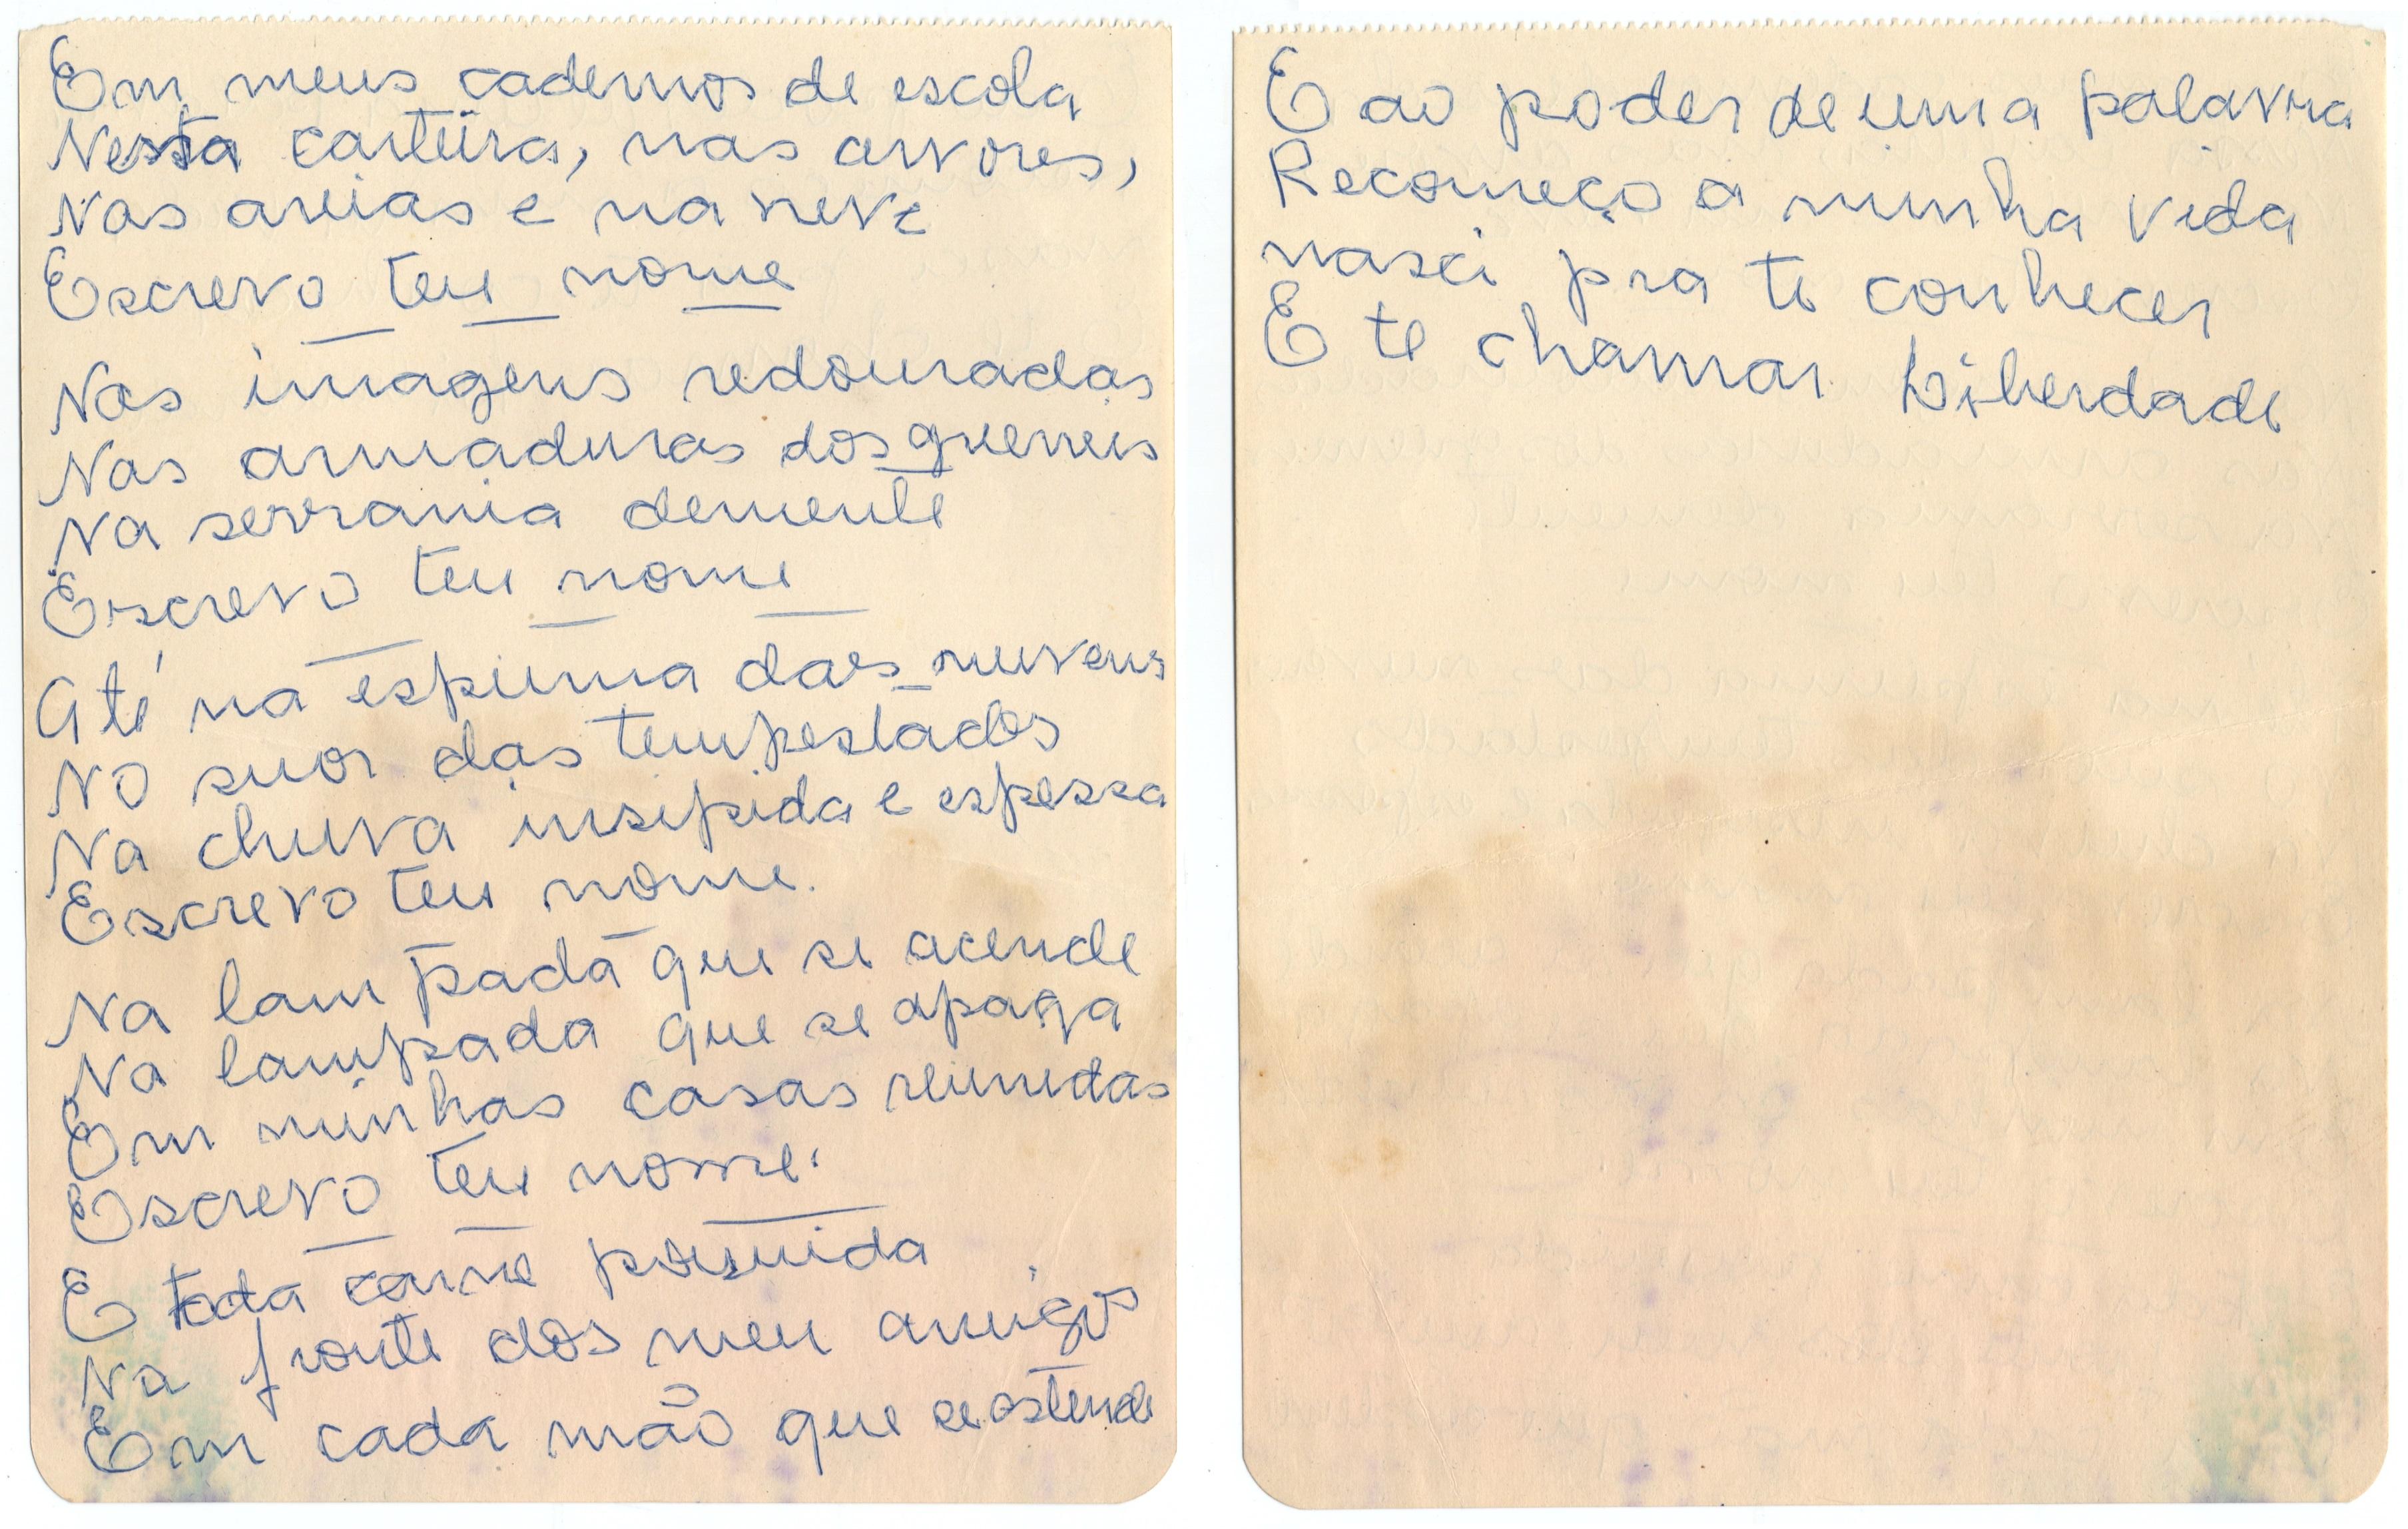 Em meus cadernos de escola
Nesta carteira, nas arvores,
Nas areias e na neve
Escrevo teu nome
Nas imagens redouradas
Nas armaduras dos guerreis
Na serrania demente
Escrevo teu nome
Até na espuma das nuvens
No suor das tempestades
Na chuva insipida e espessa
Escrevo teu nome.
Na lampada que se acende
Na lampada que se apaga
Em minhas casas reunidas
Escrevo teu nome.
E toda carne possuida
Na fronte dos meu amigos
Em cada mão que se estende
E ao poder de uma palavra
Recomeço a minha vida
nasci pra te conhecer
E te chamar Liberdade